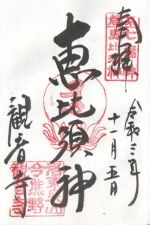 奉拝
令和三年
十一月五日
恵比須神
観音寺
今熊野